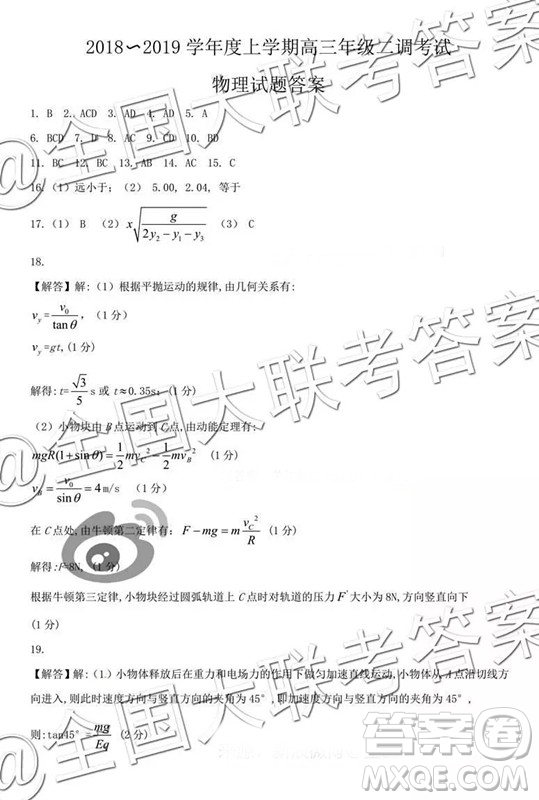 2018~2019 学年度上学期高三年级二调考试
物理试题答案
1. B 2. ACD 3. AD 4. AD 5. A
6. BCD 7. D 8. AC 9. CD 10. BD
11. BC 12. BC 13. B 14. AC 15. C
16. (1) 远小于; (2) 5.00, 2.04, 等于
17. (1) B (2) x√(g/(2y₂-y₁-y₃)) (3) C
18.
【解答】解: (1) 根据平抛运动的规律,由几何关系有:
v_y=v₀/tanθ, (1 分)
v_y=gt, (1 分)
解得: t=√3/5 s 或 t≈0.35s; (1 分)
(2) 小物块由 B 点运动到 C 点,由动能定理有:
mgR(1+sinθ)=1/2 mv_C²-1/2 mv_B² (1 分)
v_B=v₀/sinθ=4m/s (1 分)
在 C 点处,由牛顿第二定律有: F-mg=m v_C²/R (1 分)
解得:F=8N, (1 分)
根据牛顿第三定律,小物块经过圆弧轨道上 C 点时对轨道的压力 F′ 大小为 8N,方向竖直向下
(1 分)
19.
【解答】解: (1.) 小物体释放后在重力和电场力的作用下做匀加速直线运动,小物体从 A 点沿切线方
向进入,则此时速度方向与竖直方向的夹角为 45° ,即加速度方向与竖直方向的夹角为 45° ,
则:tan45° =mg/Eq (2 分)
@全国大联考答案
@全国大联考答案
@全国大联考答案
答案圈
MXQE.COM